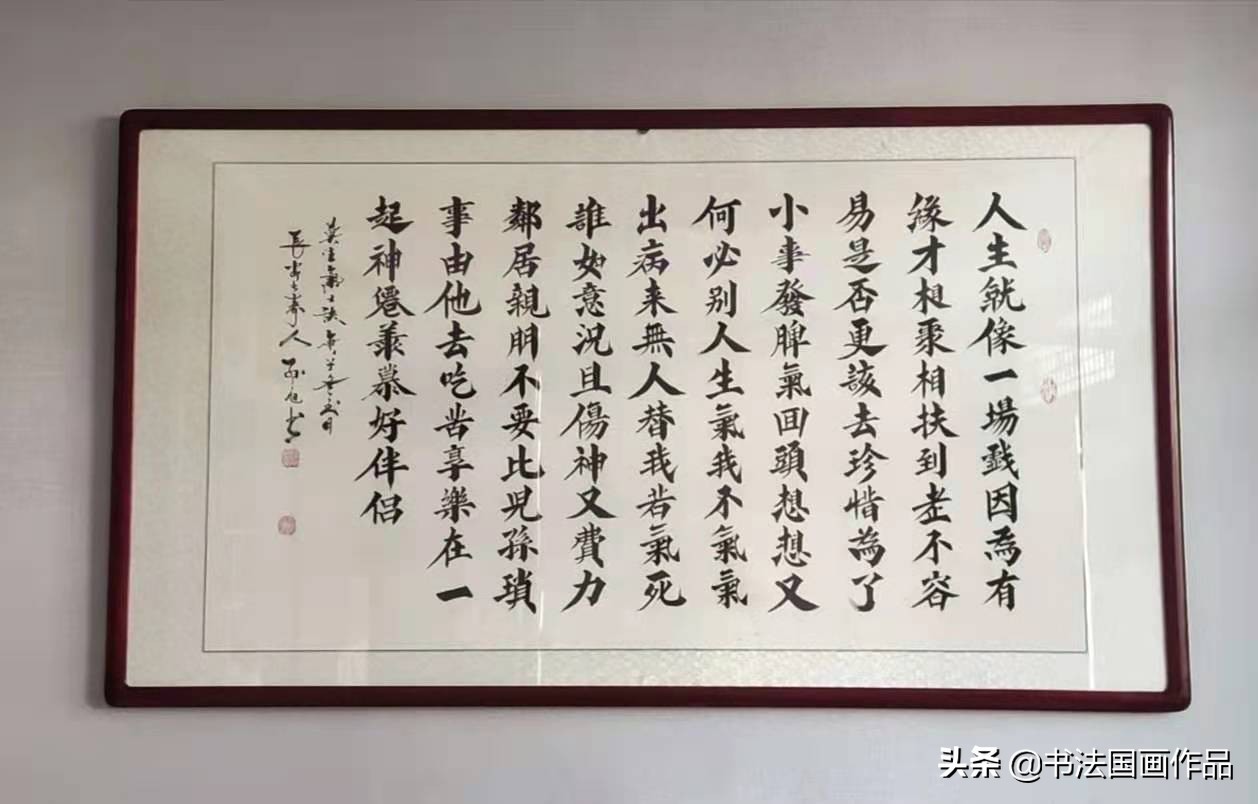 人生就像一場戲因為有
緣才相聚相扶到老不容
易是否更該去珍惜為了
小事發脾氣回頭想想又
何必别人生氣我不氣氣
出病来無人替我若氣死
誰如意況且傷神又費力
鄰居親朋不要比児孫瑣
事由他去吃苦享樂在一
起神僊羨慕好伴侣
莫生氣
人
头条 @书法国画作品